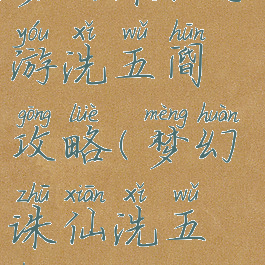 yóu xǐ wǔ hūn
游洗五阍
gōng lüè mèng huàn
攻略(梦幻
zhū xiān xǐ wǔ
诛仙洗五